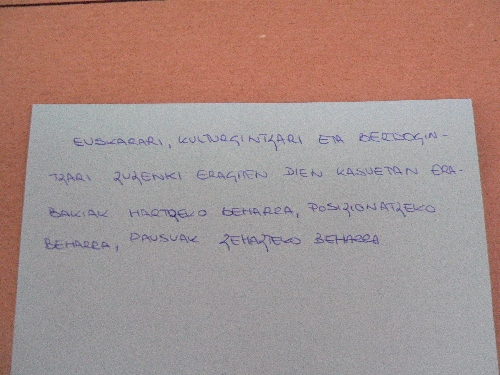 EUSKARARI, KULTURGINTZARI ETA BERTSOGIN-
TZARI ZUZENKI ERAGITEN DIEN KASUETAN ERA-
BAKIAK HARTZEKO BEHARRA, POSIZIONATZEKO
BEHARRA, PAUSUAK ZEHAZTEKO BEHARRA